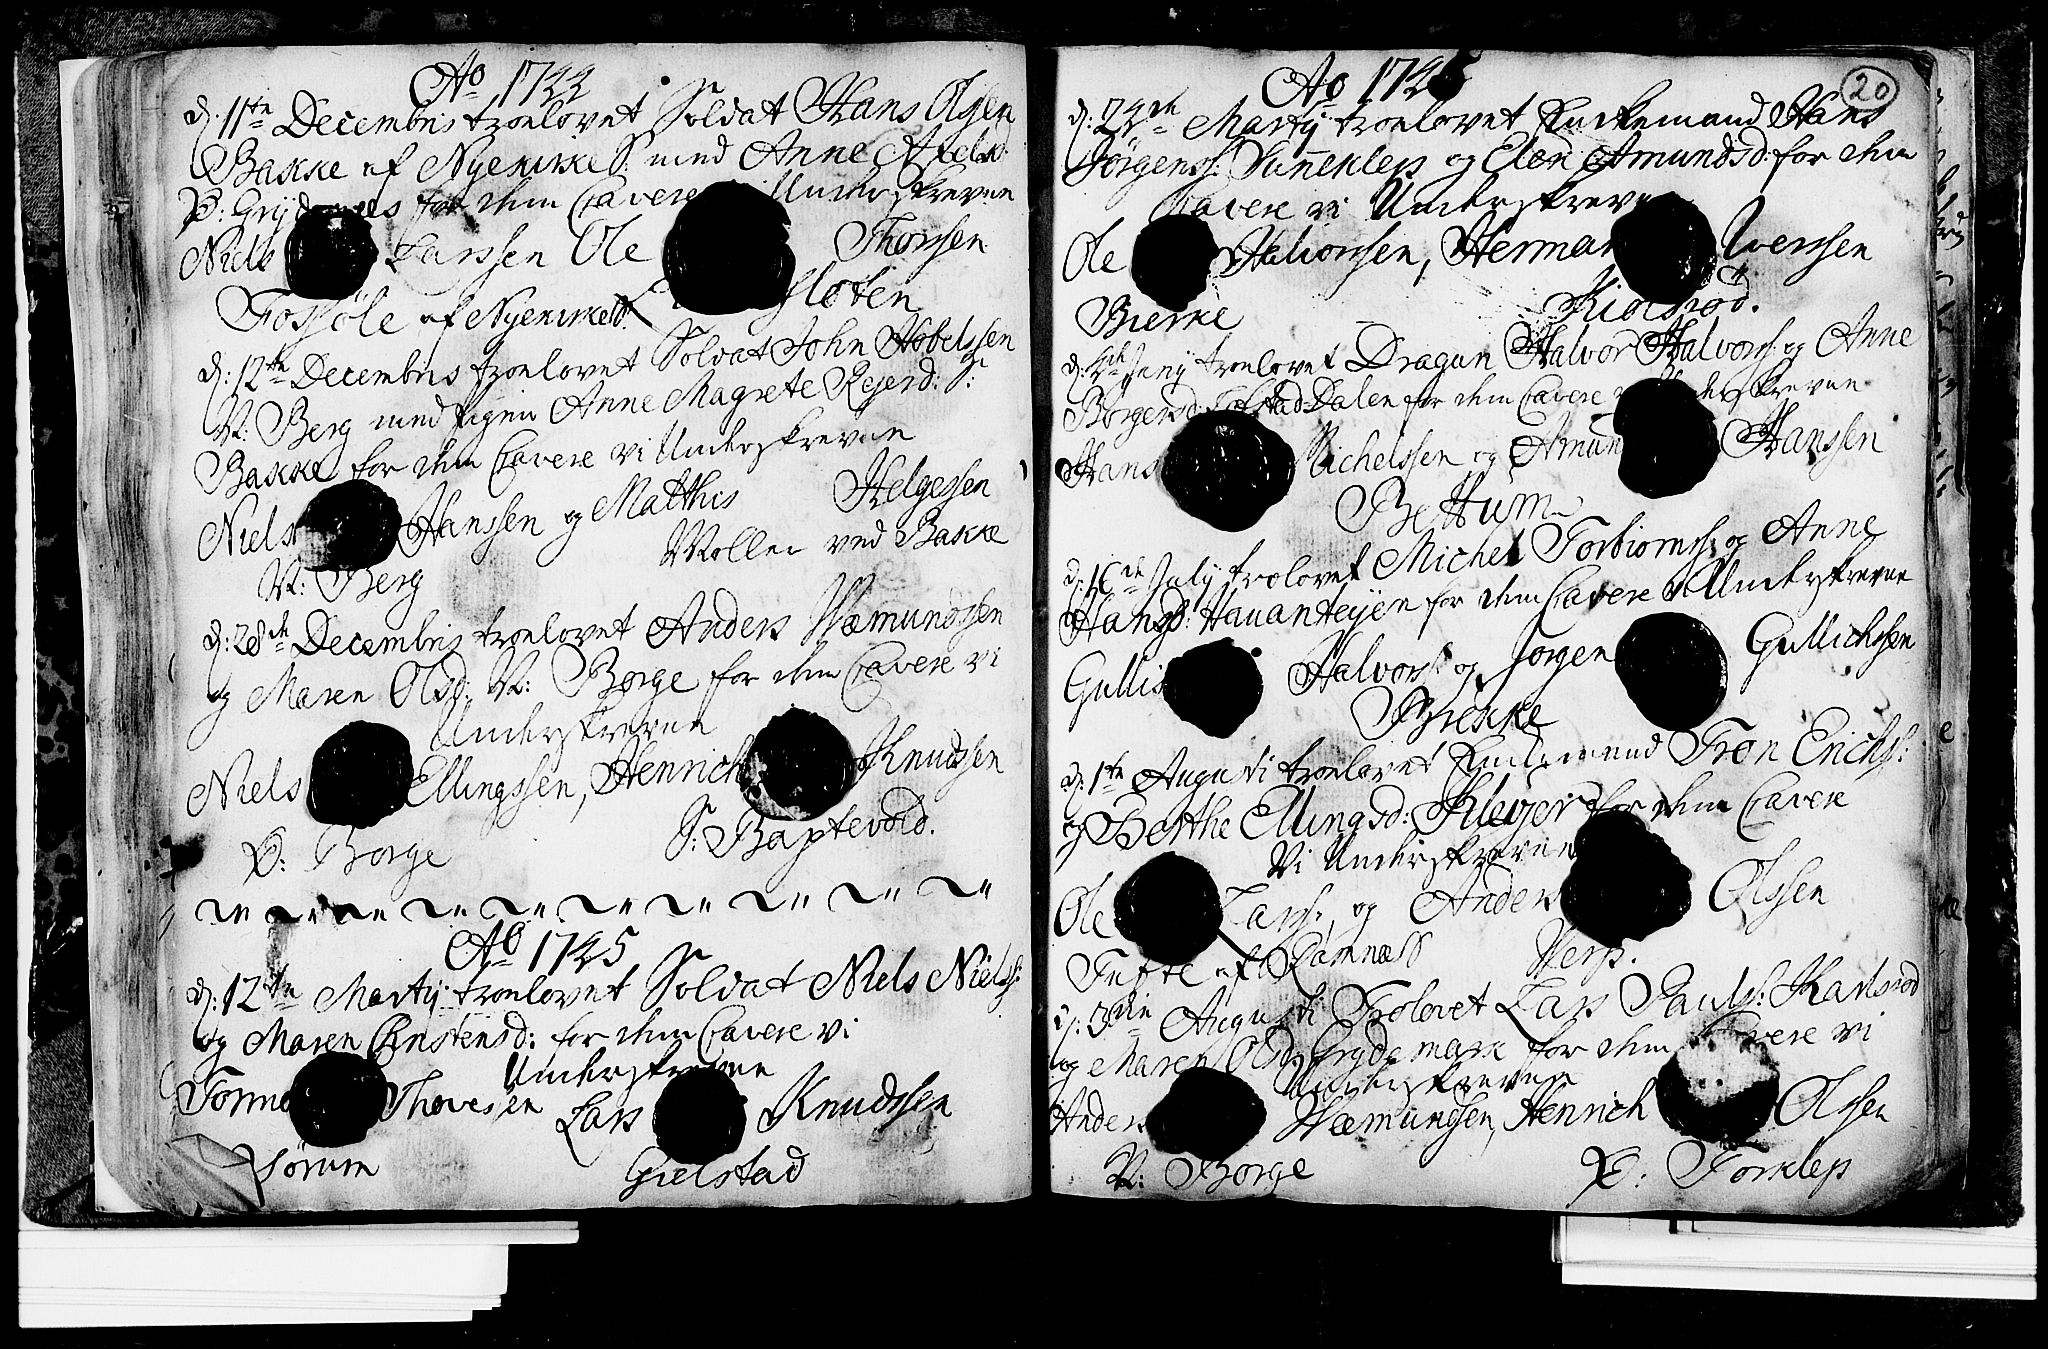 Ao 1744
d: 11te Decembris troelovet Soldat Hans Olsen
Bakke af Nyekirke S: med Anne Axelsd:
P: Grydemoes for dem Cavere vi Underskrevne
Niels Larssen Ole Thorssen
Fossøle af Nyekirkes sloten
d: 12te Decembris troelovet Soldat John Hobelssen
N: Berg med pigen Anne Magrete Rejersd: S:
Bakke for dem Cavere vi Underskrevne
Niels Hanssen og Matthis Helgessen
N: Berg Moller ved Bakke
d: 28de Decembris troelovet Anders Wæmundssen
og Maren Olsd. N: Borge for dem Cavere vi
Underskrevne
Niels Ellingssen, Henrich Knudssen
Ø: Borge S: Baptevold.
Ao 1745
d: 12te Martij troelovet Soldat Niels Nielss:
og Maren Christensd: for dem Cavere vi
Underskrevne
Tormo Thovesen Lars Knudssen
Sørum Gielstad
20
Ao 1745
d: 24de Martij troelovet Enkemand Hans
Jörgenss: Sunneklep og Elen Amundsd: for dem
Cavere vi Underskrevne
Ole Halvorssen, Herman Iverssen
Bierke Kiolsrød.
d: Janj troelovet Dragun Halvor Halvorss: og Anne
Borgersd: Dalen for dem Cavere vi Underskrevne
Hans Michelssen og Amun Hanssen
Bettum
d: 16de July troelovet Michel Torbiornss: og Anne
Hansd: Havanteyen for dem Cavere vi Underskrevne
Gullis Halvorss: og Jorgen Gullichssen
Brekke
d: 1te Augusti troelovet Enkemand Tron Erichs:
og Berthe Ellingsd: Klever for dem Cavere
Vi Underskrevne
Ole Larss: og Anders Olssen
Tufte af Ramnæss Verp.
d: 3die Augusti Trolovet Lars Pauls: Karlsrod
og Maren Olsd: Grydemark for dem Cavere vi
Underskrevne
Anders Wæmundssen, Henrich Olssen
N: Borge Ø: Torklep